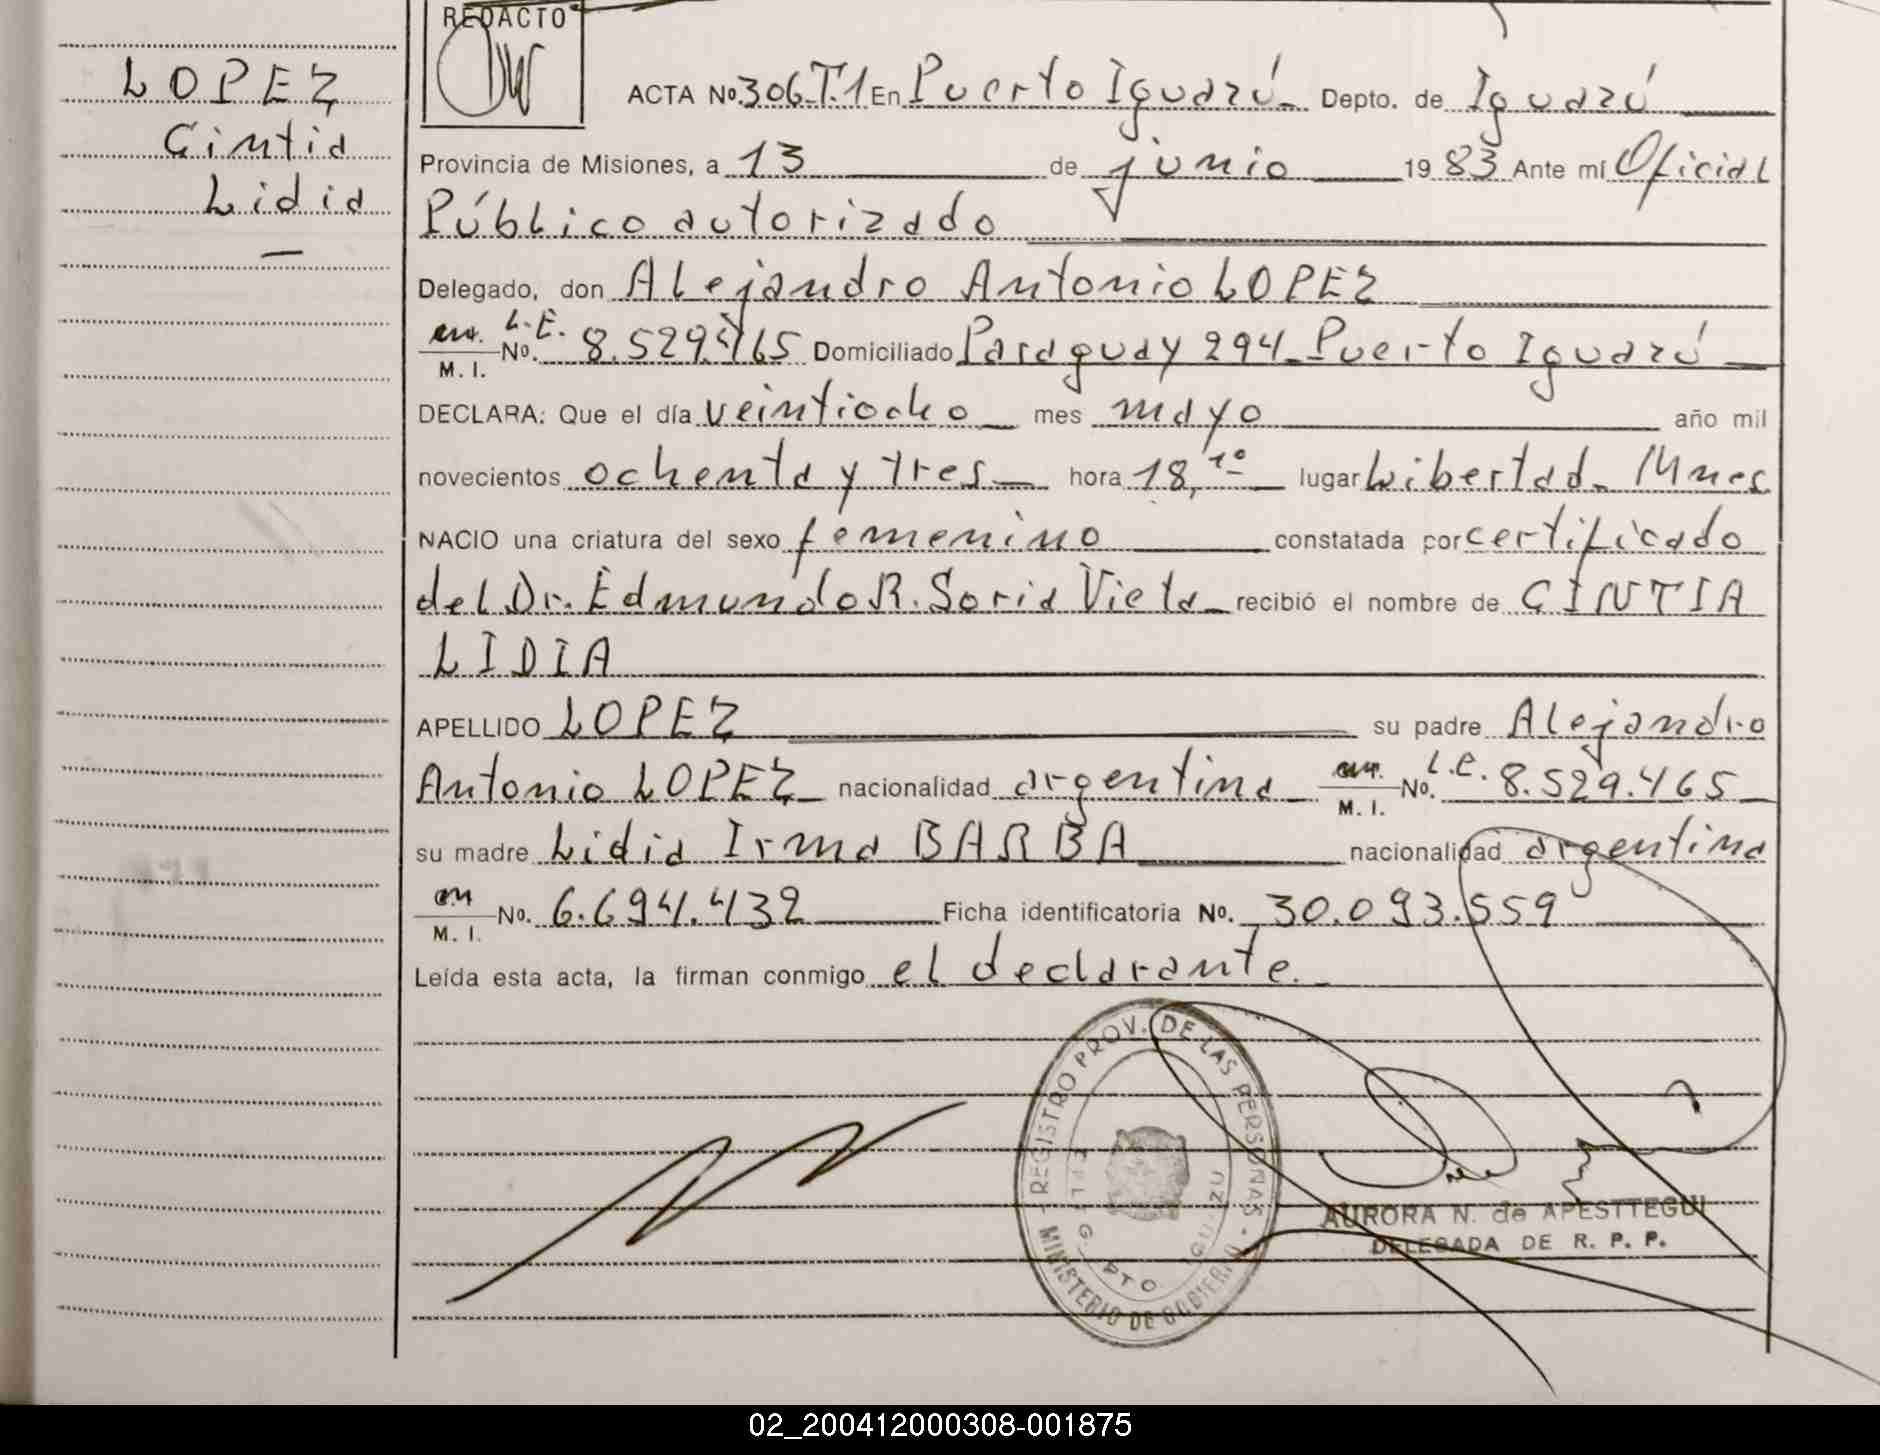 REDACTO
LOPEZ
Cintia
Lidia
—
ACTA Nº 306.T.1 En Puerto Iguazú Depto. de Iguazú
Provincia de Misiones, a 13 de junio 1983 Ante mí Oficial
Público autorizado
Delegado, don Alejandro Antonio LOPEZ
M. I. No. L.E. 8.529.465 Domiciliado Paraguay 294 Puerto Iguazú
DECLARA: Que el día veintiocho mes mayo año mil
novecientos ochenta y tres hora 18,10 lugar Libertad. Mnes
NACIO una criatura del sexo femenino constatada por certificado
del Dr. Edmundo R. Soria Vieta recibió el nombre de CINTIA
LIDIA
APELLIDO LOPEZ su padre Alejandro
Antonio LOPEZ nacionalidad argentina M. I. No. L.E. 8.529.465
su madre Lidia Irma BARBA nacionalidad argentina
M. I. No. 6.694.432 Ficha identificatoria No. 30.093.559
Leída esta acta, la firman conmigo el declarante.
REGISTRO PROV. DE LAS PERSONAS - MINISTERIO DE GOBIERNO
AURORA N. de APESTTEGUI
DELEGADA DE R. P. P.
02_200412000308-001875